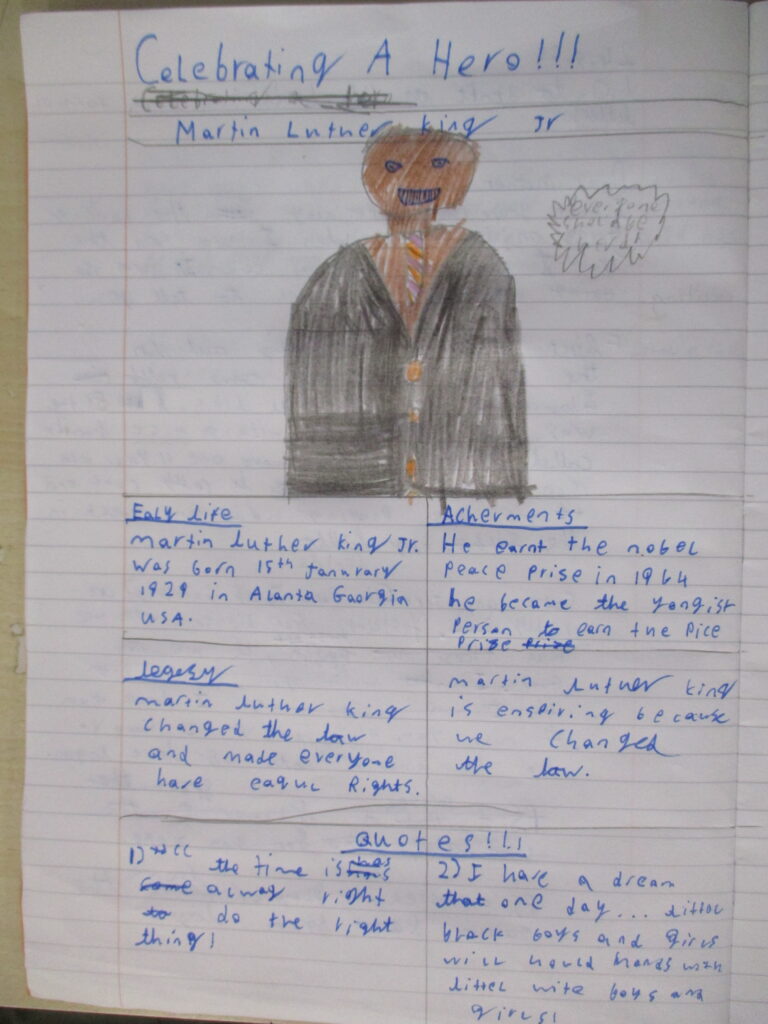 Celebrating A Hero!!!
Martin Luther King Jr
everyone
Ealy Life
martin luther king Jr.
was born 15th Janurary
1929 in Alanta Georgia
USA.
Acherments
He earnt the nobel
Peace Prise in 1964
he became the yongist
Person to earn the Pice
Prize
legesy
martin luther king
changed the law
and made everyone
have eaqul Rights.
martin luther king
is enspiring because
he changed
the law.
Quotes!!!!
1) the time is
always right
do the right
thing!
2) I have a dream
that one day... littel
black boys and girls
will hould hands with
littel wite boys and
girls!